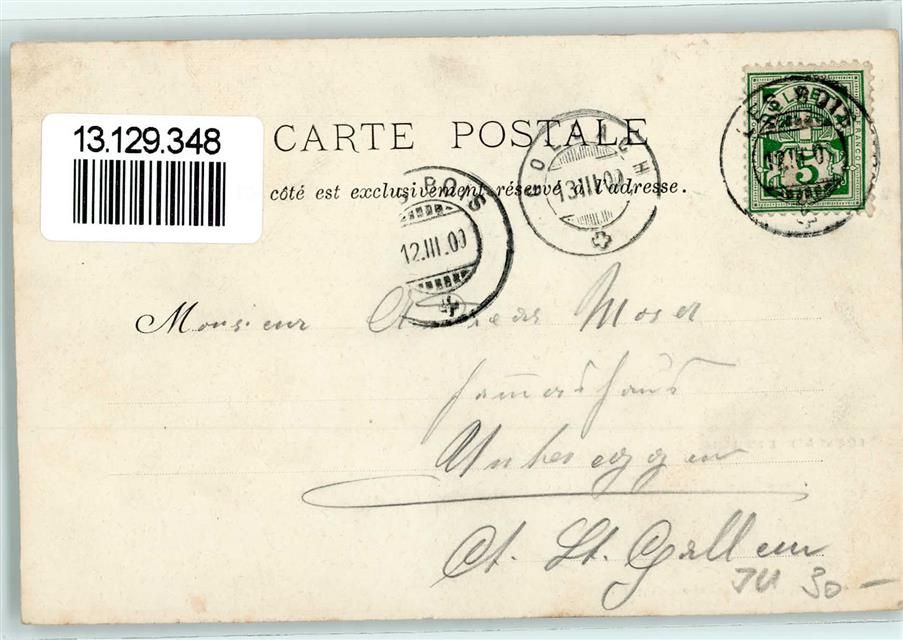 13.129.348
CARTE POSTALE
côté est exclusivement réservé à l'adresse.
13.III.00
12.III.00
5
FRANCO
Monsieur Andreas Moser
Untereggen
Ct. St. Gallen
JU 30-